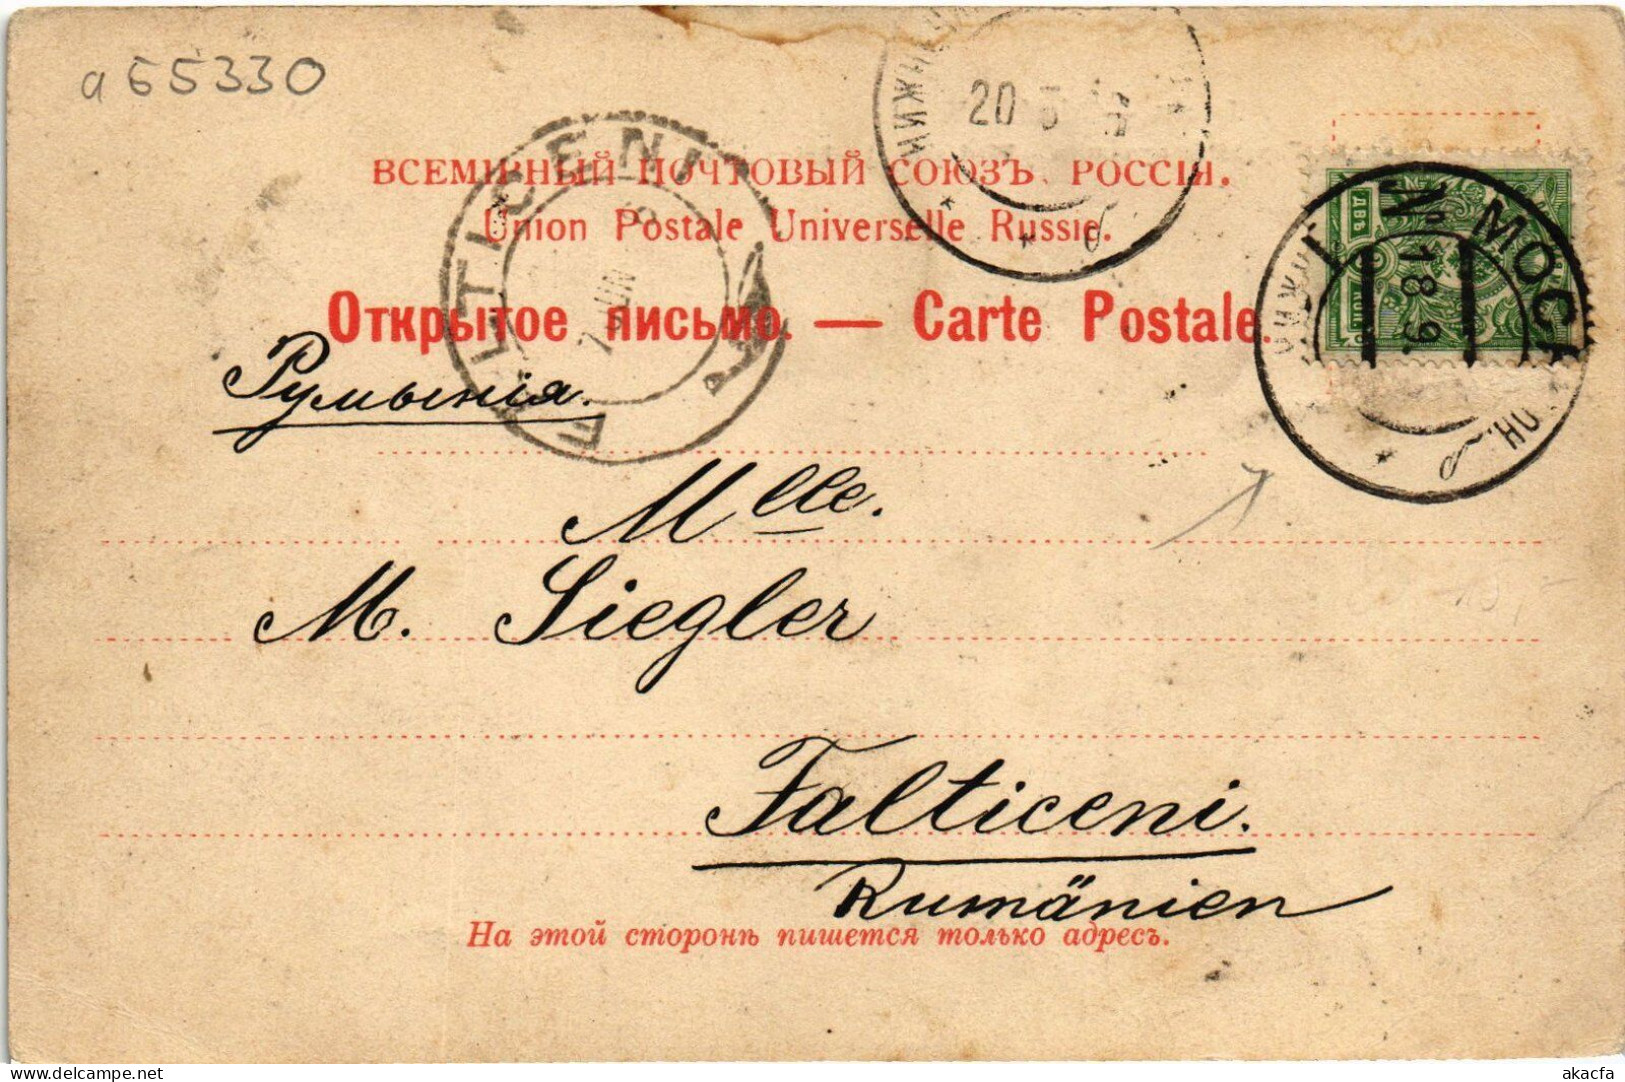 a65330
20
ВСЕМІРНЫЙ ПОЧТОВЫЙ СОЮЗЪ. РОССІЯ.
Union Postale Universelle Russie.
Открытое письмо. — Carte Postale.
FALTICENI
7 IUN
МОСК
18 9.
ДВѢ КОП.
Румынія.
Mlle.
M. Siegler
Falticeni.
Rumänien
На этой сторонѣ пишется только адресъ.
akacfa